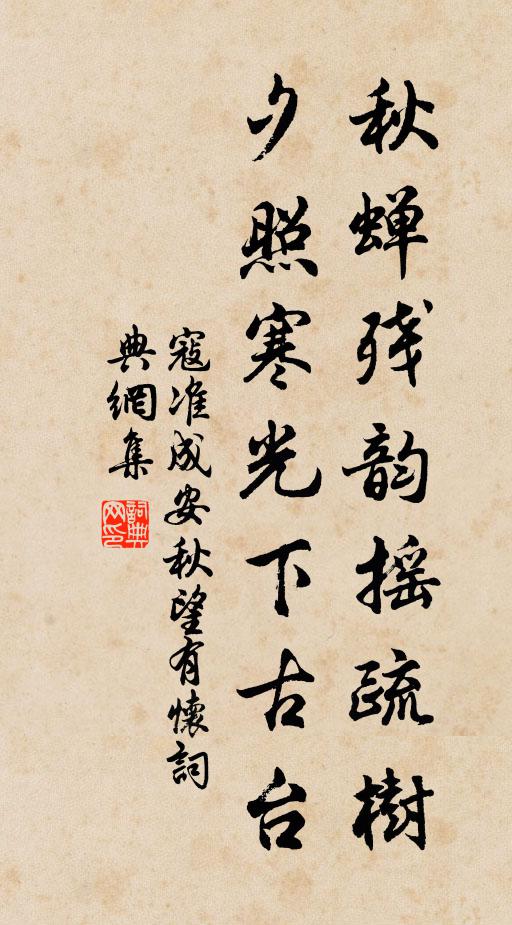 秋蝉残韵摇疏樹
夕照寒光下古台
寇准成安秋望有懷詞
典網集
詞典網印